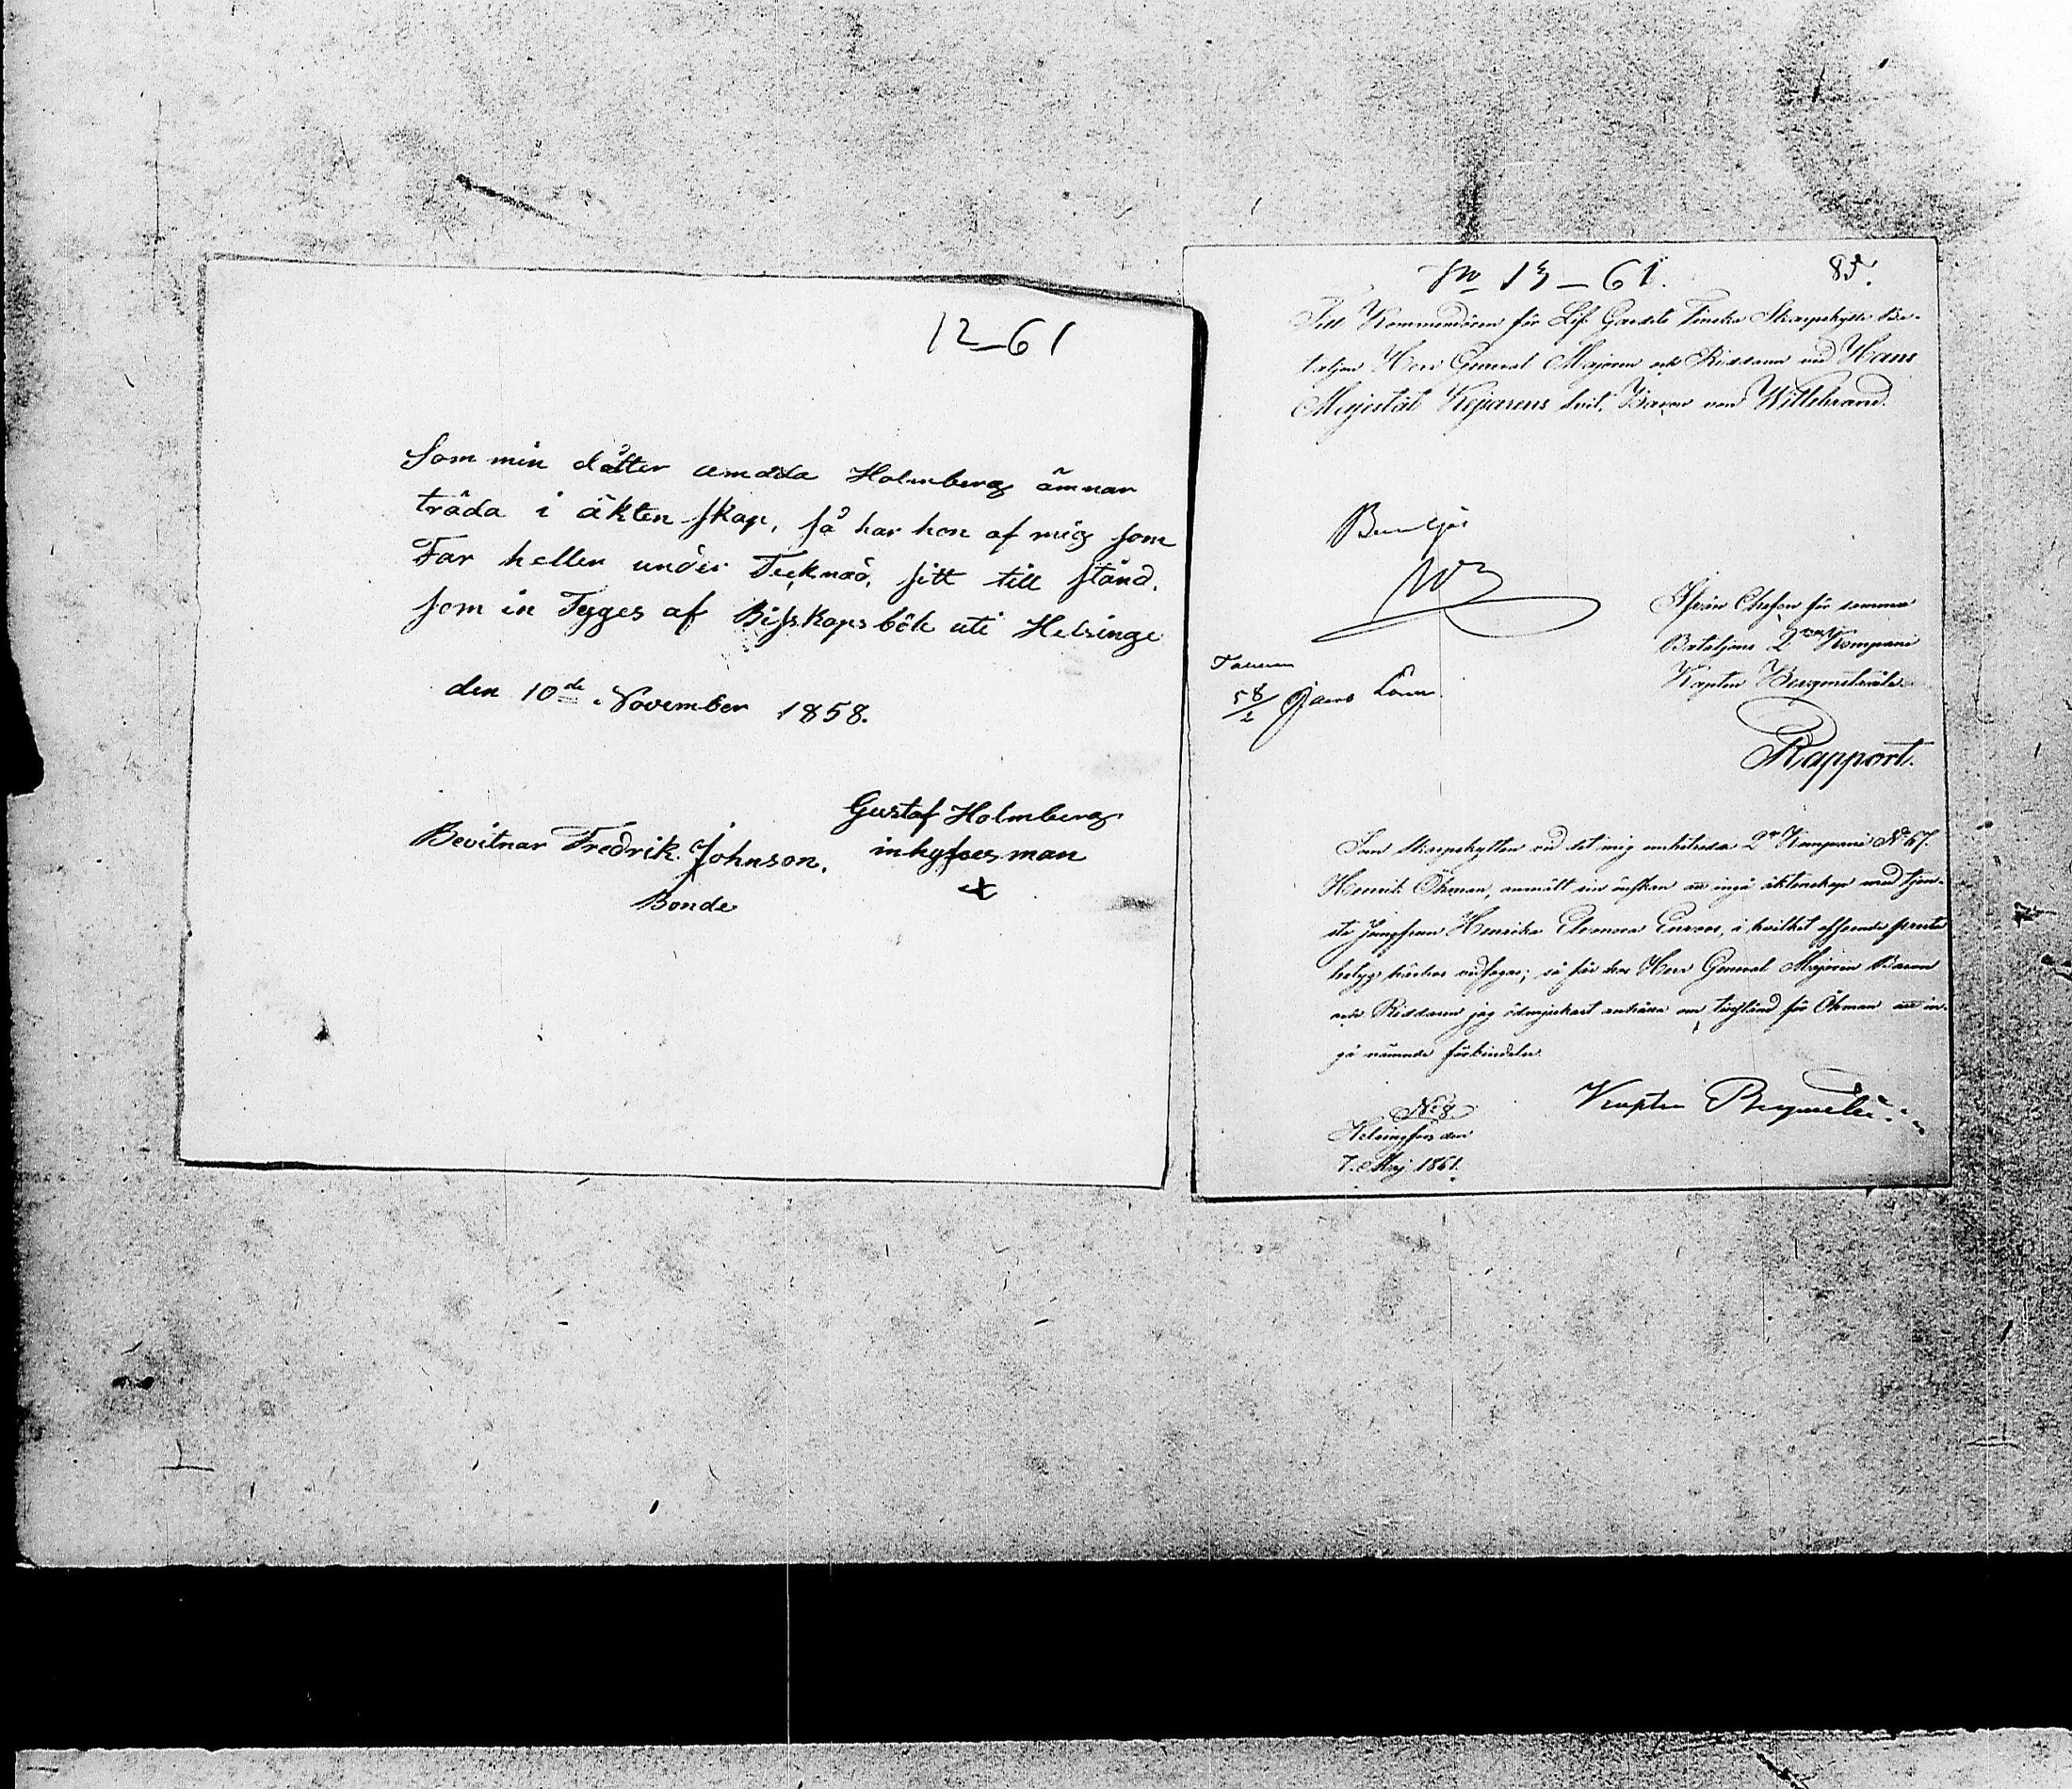 12–61
Som min dåtter amada Holmberg ämnar
träda i äkten skap, så har hon af mig som
Far heller under Tecknad, sitt till stånd.
som in Tyges af Biskopsböle uti Helsinge
den 10de November 1858.
Gustaf Holmberg
inhyses man
Bevitnar Fredrik Johnson.
Bonde
No 13–61. 85.
Till Kommendören för Lif Gardets Finska Skarpskytte Ba-
taljon Herr General Majoren och Riddaren vid Hans
Majestät Kejsarens Svit, Baron von Willebrand.
Beviljas
Ifrån Chefen för samma
Bataljons 2dra Kompani
Kapten
Rapport.
Som Skarpskytten vid det mig anförtrodda 2a Kompanie No 67.
Henrik Öhman, anmält sin önskan att ingå äktenskap med tjen-
ste Jungfrun Henrika Eleonora, i hvilket afseende
betyg härhos vidfogas; så får hos Herr General Majoren Baron
och Riddaren jag ödmjukast anhålla om tillstånd för Öhman att in-
gå nämnde förbindelse.
No 8.
Helsingfors den
7. Maj 1861.
Kapten